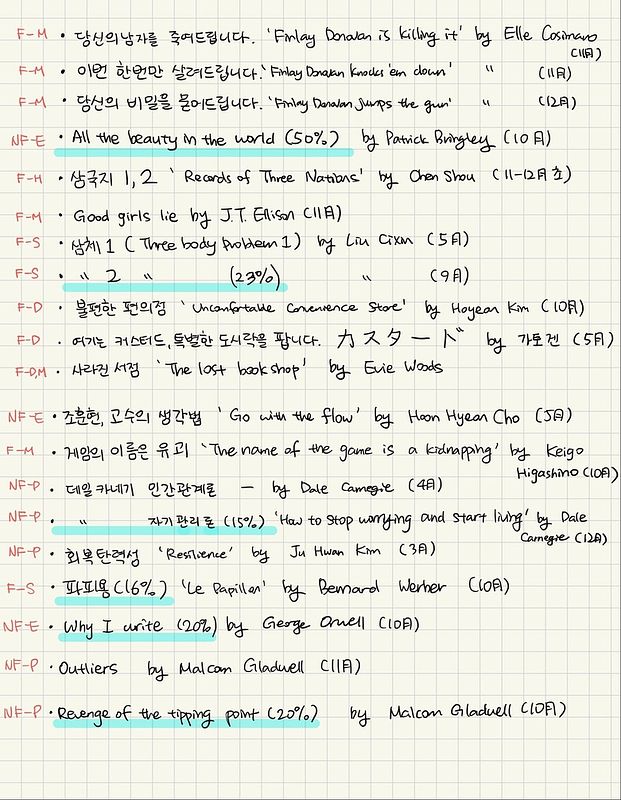 F-M • 당신의남자를 죽여드립니다. 'Finlay Donovan is killing it' by Elle Cosimano
(11月)
F-M • 이번 한번만 살려드립니다. 'Finlay Donovan knocks 'em down' " (11月)
F-M • 당신의 비밀을 묻어드립니다. 'Finlay Donovan jumps the gun' " (12月)
NF-E • All the beauty in the world (50%) by Patrick Bringley (10月)
F-H • 삼국지 1, 2 'Records of Three Nations' by Chen Shou (11-12月초)
F-M • Good girls lie by J.T. Ellison (11月)
F-S • 삼체 1 (Three body problem 1) by Liu Cixin (5月)
F-S • " 2 " (23%) " (9月)
F-D • 불편한 편의점 'Uncomfortable Convenience Store' by Hoyean Kim (10月)
F-D • 여기는 커스터드, 특별한 도시락을 팝니다. カスタード by 가토겐 (5月)
F-D,M • 사라진 서점 'The lost bookshop' by Evie Woods
NF-E • 조훈현, 고수의 생각법 'Go with the flow' by Hoon Hyean Cho (5月)
F-M • 게임의 이름은 유괴 'The name of the game is a kidnapping' by Keigo
Higashino (10月)
NF-P • 데일카네기 인간관계론 – by Dale Carnegie (4月)
NF-P • " 자기관리론 (15%) 'How to stop worrying and start living' by Dale
Carnegie (12月)
NF-P • 회복탄력성 'Resilience' by Ju Hwan Kim (3月)
F-S • 파피용 (16%) 'Le Papillon' by Bernard Werber (10月)
NF-E • Why I write (20%) by George Orwell (10月)
NF-P • Outliers by Malcom Gladuell (11月)
NF-P • Revenge of the tipping point (20%) by Malcom Gladuell (10月)